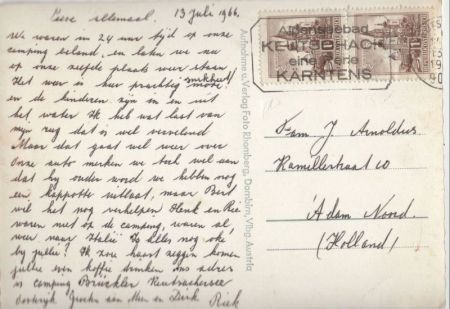 Lieve allemaal. 13 Juli 1966.
We waren in 24 uur tijd op onze
camping beland, en laten we nu
op onze zelfde plaats weer staan
Het weer is hier prachtig mooi
en de kinderen zijn in en uit
het water Ik heb wat last van
mijn rug dat is wel vervelend
Maar dat gaat wel weer over
Onze auto merken we toch wel aan
dat hij ouder word we hebben nog
een kapotte uitlaat, maar Bert
wil het nog verhelpen Henk en Rie
waren niet op de camping, waren al,
weer naar Italië Is alles nog oke
bij jullie? Ik zou haast zeggen komen
jullie even koffie drinken Ons adres
is camping Brückler Keutschachersee
Oostenrijk Groeten aan Moe en Dirk Riek
Aufnahme u. Verlag Foto Rhomberg, Dornbirn, Vlbg. Austria
Alpenseebad
KEUTSCHACH
eine Perle
KÄRNTENS
Fam J. Arnoldus
Kamillestraat 10
A'dam Noord.
(Holland)